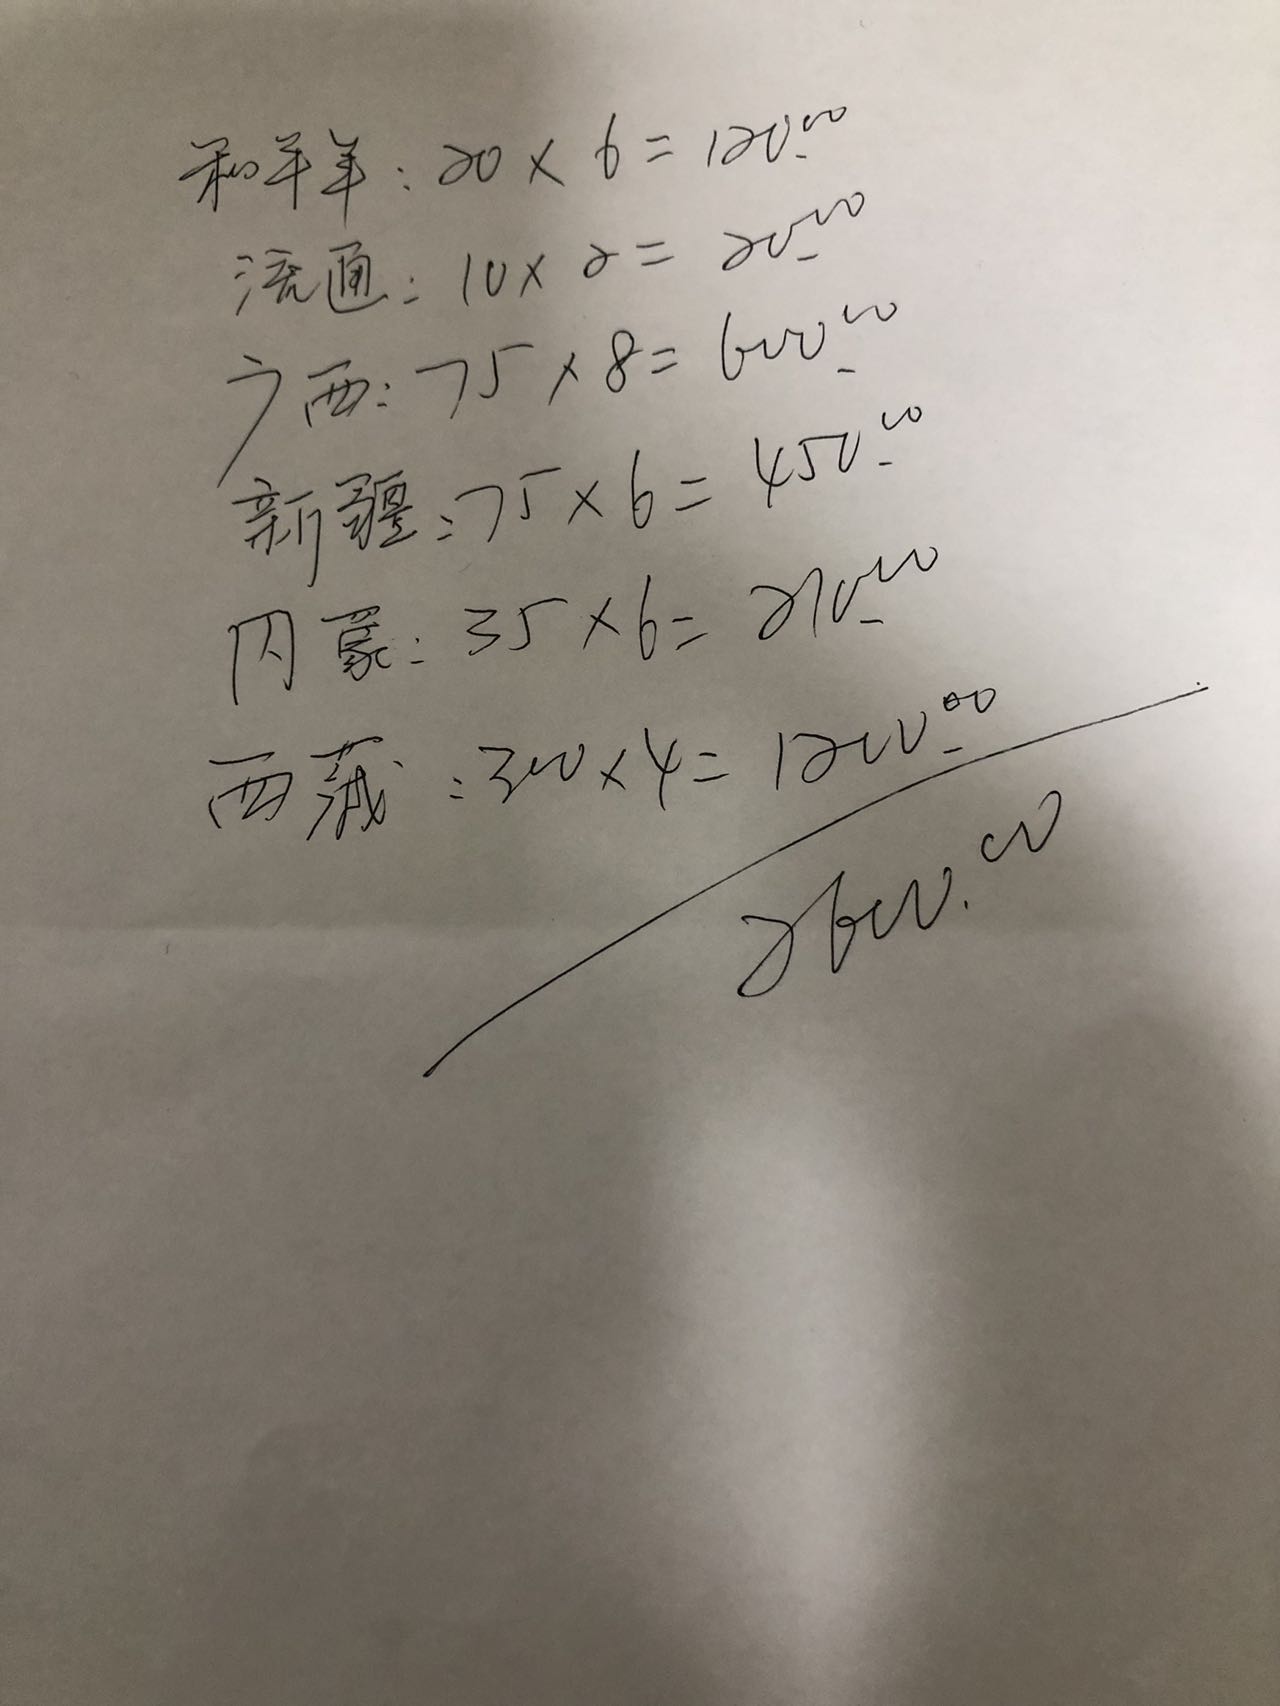 和羊羊:20×6=120.00
流通:10×2=20.00
广西:75×8=600.00
新疆:75×6=450.00
内蒙:35×6=210.00
西藏:300×4=1200.00
2600.00